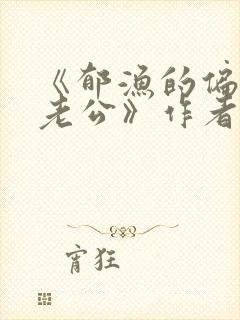 《郁渔的偏
老公》作者
宵狂